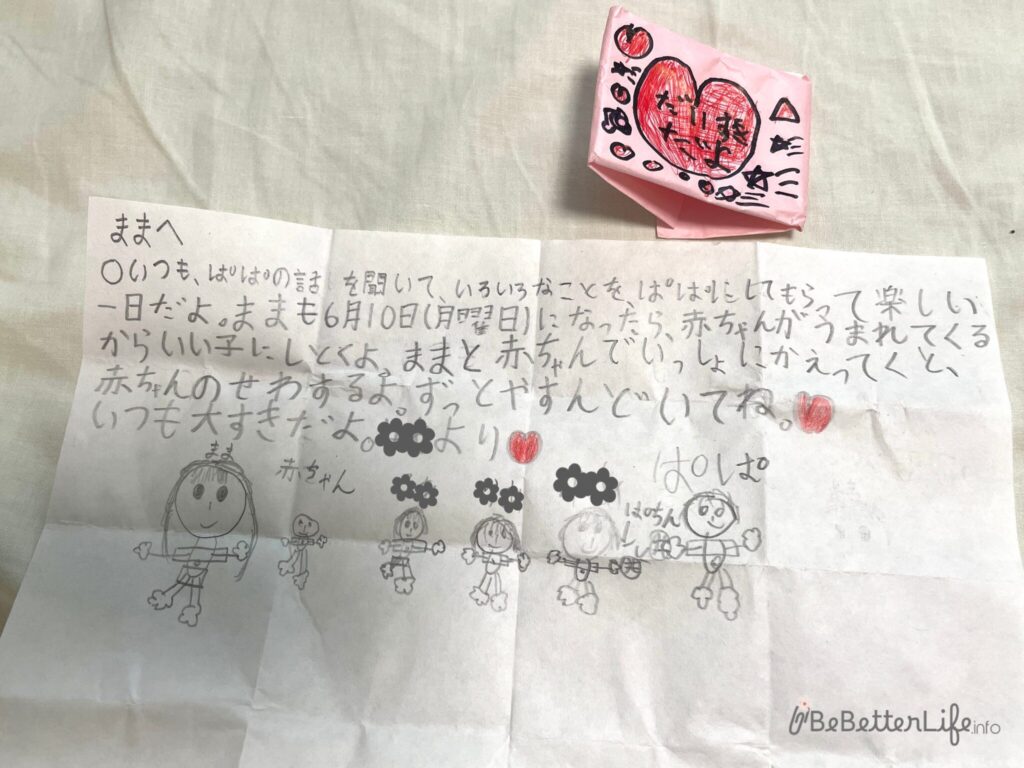 だい好
だよ
ままへ
○いつも、ぱぱの話を聞いて、いろいろなことを、ぱぱにしてもらって楽しい
一日だよ。ままも6月10日(月曜日)になったら、赤ちゃんがうまれてくる
からいい子にしとくよ。ままと赤ちゃんでいっしょにかえってくと、
赤ちゃんのせわするよ。ずっとやすんどいてね。
いつも大すきだよ。より
まま
赤ちゃん
ぱぱ
BeBetterLife.info